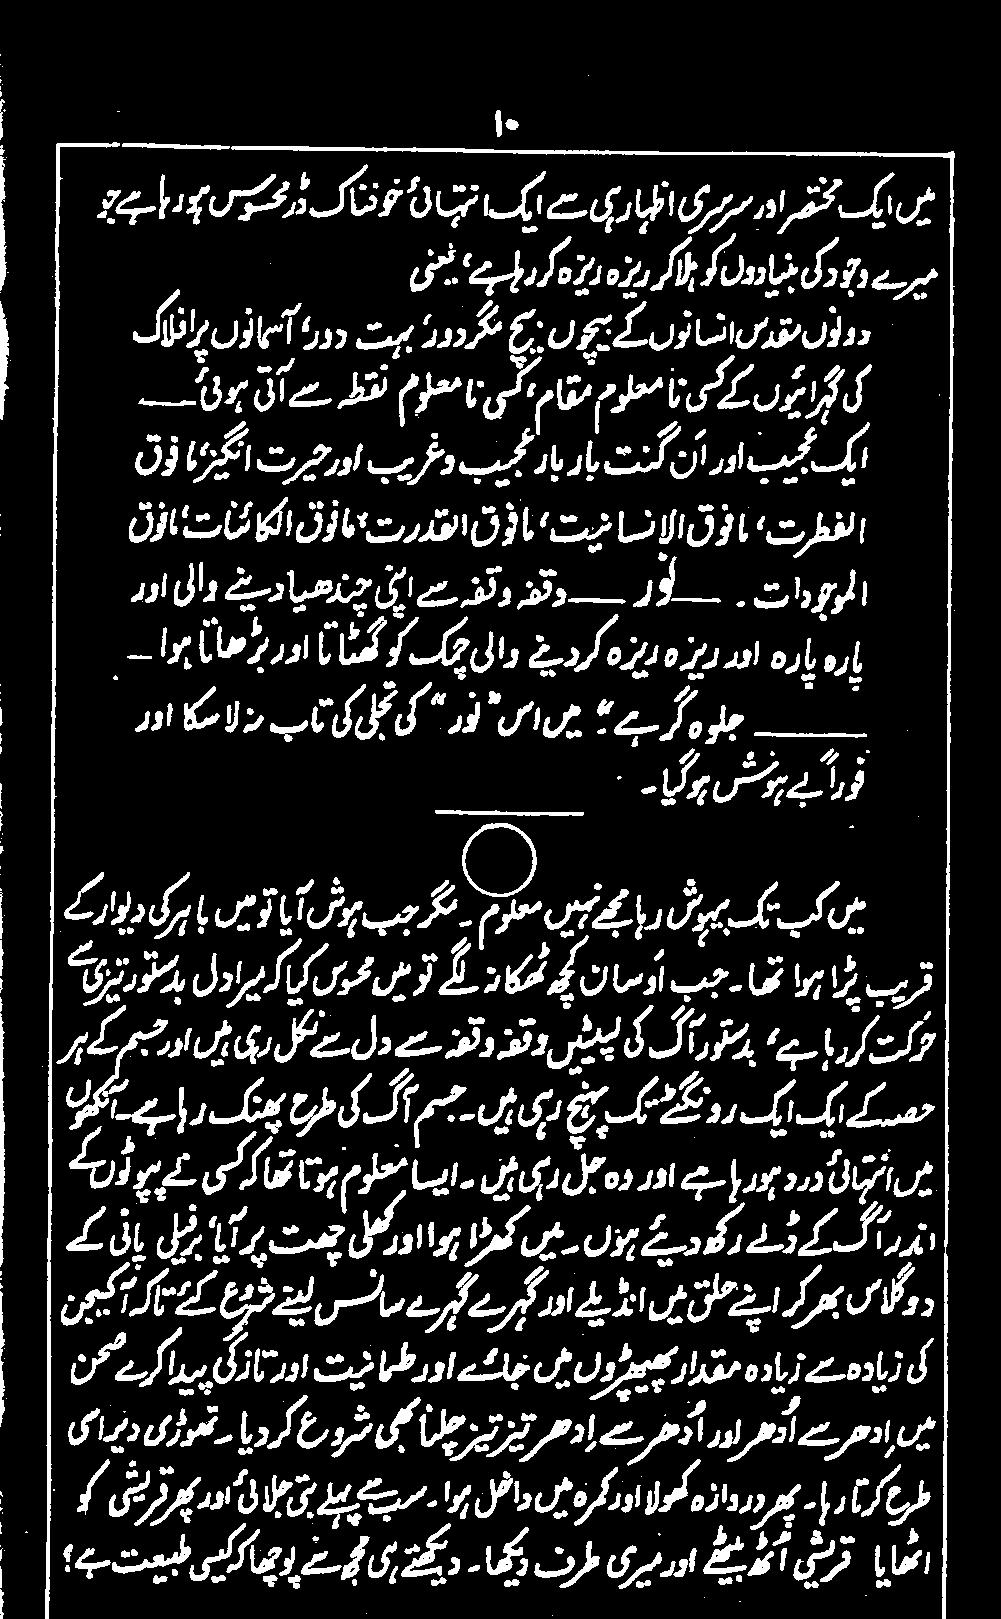 ۱۰
میں ایک مختصر اور سرسری اظہار ہی سے ایک انتہائی خوفناک ڈر محسوس ہو رہا ہے جو
میرے وجود کی بنیادوں کو ہلا کر ریزہ ریزہ کر رہا ہے، یعنی
دونوں مقدس انسانوں کے بیچوں بیچ مگر دور، بہت دور، آسمانوں پر افلاک
کی گہرائیوں کے کسی نامعلوم مقام، کسی نامعلوم نقطہ سے آتی ہوئی ——
ایک عجیب اور اَن گنت بار بار عجیب و غریب اور حیرت انگیز، مافوق
الفطرت، مافوق الانسانیت، مافوق القدرت، مافوق الکائنات، مافوق
الموجودات ۔ —— نُور —— وقفہ وقفہ سے اپنی چندھیا دینے والی اور
پارہ پارہ اور ریزہ ریزہ کر دینے والی چمک کو گھٹاتا اور بڑھاتا ہوا —
—— جلوہ گر ہے“؛ میں اس ”نُور“ کی تجلی کی تاب نہ لا سکا اور
فوراً بے ہوش ہو گیا۔
میں کب تک بیہوش رہا مجھے نہیں معلوم ۔ مگر جب ہوش آیا تو میں باہر کی دیوار کے
قریب پڑا ہوا تھا۔ جب اوسان کچھ ٹھکانہ لگے تو میں محسوس کیا کہ میرا دل بدستور تیزی سے
حرکت کر رہا ہے، بدستور آگ کی لپیٹیں وقفہ وقفہ سے دل سے نکل رہی ہیں اور جسم کے ہر
حصہ کے ایک ایک رونگٹے تک پہنچ رہی ہیں۔ جسم آگ کی طرح پھنک رہا ہے۔ آنکھوں
میں انتہائی درد ہو رہا ہے اور وہ جل رہی ہیں ۔ ایسا معلوم ہوتا تھا کہ کسی نے پپوٹوں کے
اندر آگ کے ڈلے رکھ دیئے ہوں ۔ میں کھڑا ہوا اور کھلی چھت پر آیا، برفیلی پانی کے
دو گلاس بھر کر اپنے حلق میں انڈیلے اور گہرے گہرے سانس لینے شروع کئے تاکہ آکسیجن
کی زیادہ سے زیادہ مقدار پھیپھڑوں میں جائے اور طمانیت اور تازگی پیدا کرے صحن
میں اِدھر سے اُدھر اور اُدھر سے اِدھر تیز تیز چلنا بھی شروع کر دیا ۔ تھوڑی دیر اسی
طرح کرتا رہا۔ پھر دروازہ کھولا اور کمرہ میں داخل ہوا ۔ سب سے پہلے بتی جلائی اور پھر قریشی کو
اٹھایا قریشی اُٹھ بیٹھے اور میری طرف دیکھا ۔ دیکھتے ہی مجھ سے پوچھا کہ کیسی طبیعت ہے؟